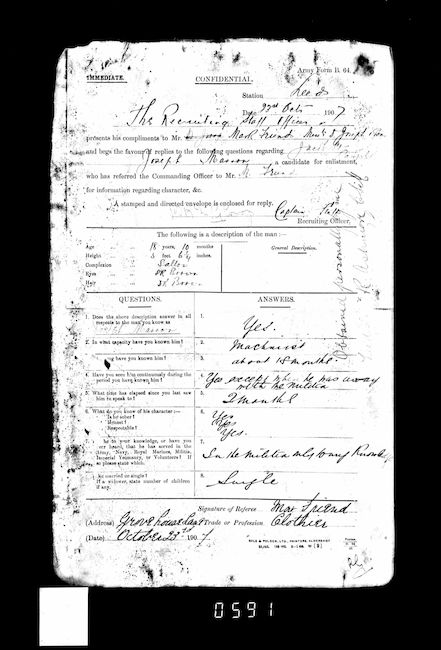 Army Form B. 64.
IMMEDIATE.
CONFIDENTIAL.
Station Leeds
Date 22nd Octr 1907
The Recruiting Staff Officer
presents his compliments to Mr. Mark Friend
and begs the favour of replies to the following questions regarding
Joseph Mason, a candidate for enlistment,
who has referred the Commanding Officer to Mr. M Friend
for information regarding character, &c.
A stamped and directed envelope is enclosed for reply.
Captain
Recruiting Officer.
The following is a description of the man:—
Age 18 years 10 months
Height 5 feet 6¼ inches.
Complexion Sallow
Eyes DK Brown
Hair DK Brown
General Description.
QUESTIONS.
ANSWERS.
1. Does the above description answer in all
respects to the man you know as
Joseph Mason
1. Yes.
2. In what capacity have you known him?
2. Machinist
3. long have you known him?
3. about 18 months.
4. Have you seen him continuously during the
period you have known him?
4. Yes except when he was away
with the Militia
5. What time has elapsed since you last saw
him to speak to?
5. 2 months
6. What do you know of his character:—
Is he sober?
Honest?
Respectable?
6. Yes
Yes
Yes.
7. he to your knowledge, or have you
ever heard, that he has served in the
Army, Navy, Royal Marines, Militia,
Imperial Yeomanry, or Volunteers? If
so please state which.
7. In the Militia only to my Knowledge
8. he married or single?
If a widower, state number of children
if any.
8. Single
Signature of Referee Max Friend
(Address) Grove house Lane Trade or Profession Clothier
(Date) October 23rd 1907.
0591